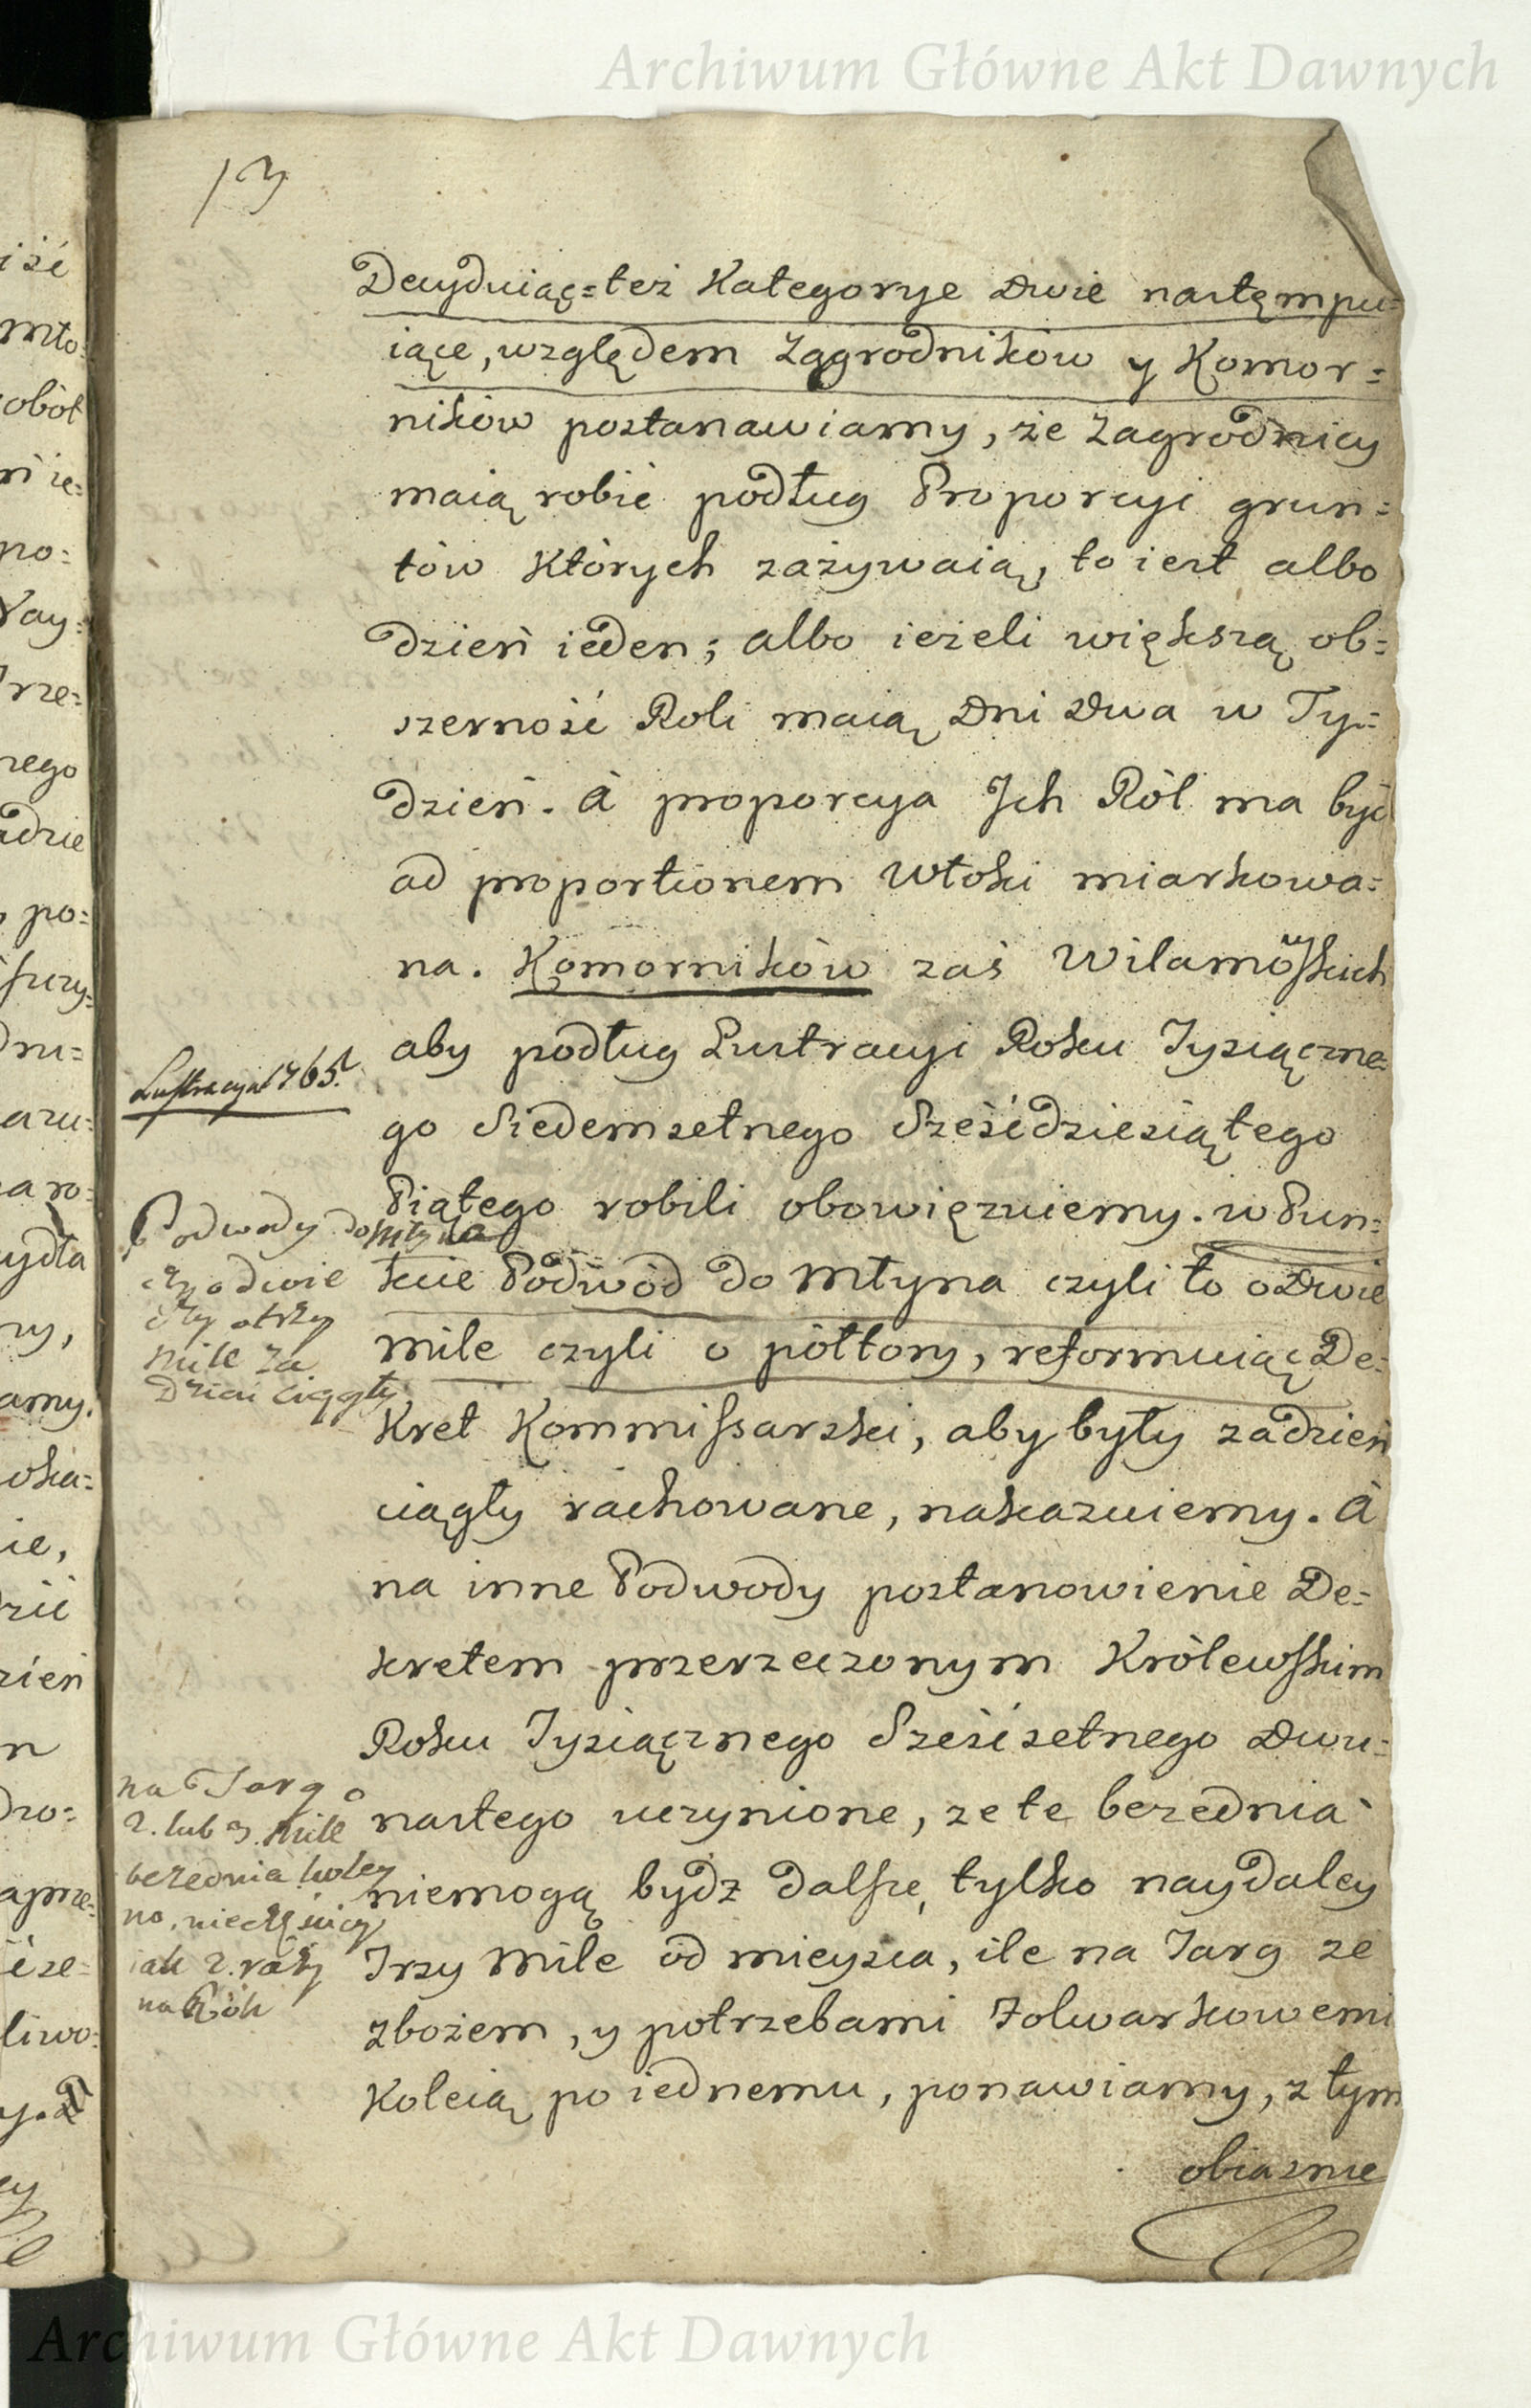 Archiwum Główne Akt Dawnych
13
Decyduiąc=też Kategorye Dwie nastęmpu=
iące, względem Zagrodnikow y Komor=
ników postanawiamy, że Zagrodnicy
maią robić podług Proporcyi grun=
tów których zażywaią, to iest albo
dzień ieden; albo ieżeli większą ob=
szerność Roli maią Dni Dwa w Ty=
dzień. A proporcya Jch Ról ma być
ad proportionem Włoki miarkowa=
na. Komorników zaś Wilamowskich
aby podług Lustracyi Roku Tysiączne=
go Siedemsetnego Sześćdziesiątego
Piątego robili obowięzuiemy. w Pun=
kcie Podwód do Młyna czyli to o Dwie
mile czyli o półtory, reformuiąc De=
kret Kommissarski, aby były za dzień
ciągły rachowane, nakazuiemy. A
na inne Podwody postanowienie De=
kretem przerzeczonym Królewskim
Roku Tysiącznego Sześćsetnego Dwu=
nastego uczynione, że te bezednia
niemogą bydz dalsze, tylko naydaley
Trzy Mile od mieysca, ile na Targ ze
zbożem, y potrzebami Folwarkowemi
Koleią po iednemu, ponawiamy, z tym
obiaśnie
Lustracya 1765.
Podwody do Młyna
czy o dwie
czy o trzy
mile za
Dzień ciągły
na Targ o
2. lub 3. mile
bezednia koley
no, nie częściey
iak 2. razy
na Rok
iść
mło=
obót
ń ie=
po=
rze=
nego
adzie
po=
szy=
aro=
ydła
ry,
amy.
ie,
dzień
n
apze=
liwo=
Archiwum Główne Akt Dawnych